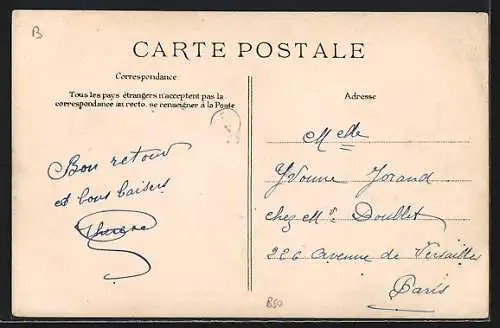 B
CARTE POSTALE
Correspondance
Tous les pays étrangers n'acceptent pas la
correspondance au recto. se renseigner à la Poste
Bon retour
et bons baisers
Therese
Adresse
Melle
Yvonne Jorand
chez Mr. Doublet
226 Avenue de Versailles
Paris
B50